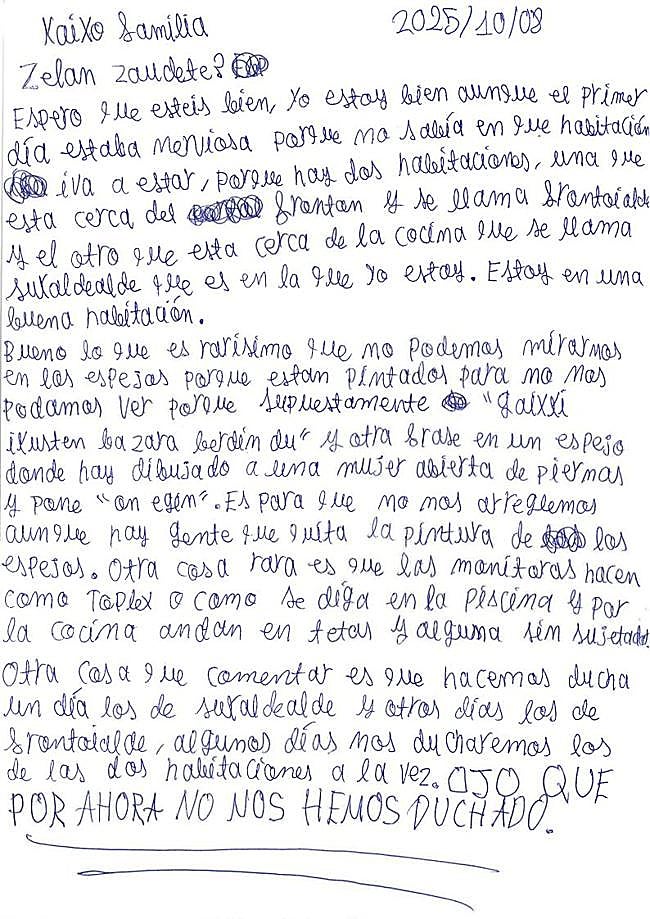 Kaixo familia 2025/10/08
Zelan zaudete?
Espero que esteis bien, yo estoy bien aunque el primer
día estaba nerviosa porque no sabía en que habitación
iva a estar, porque hay dos habitaciones, una que
esta cerca del frontan y se llama frontoialde
y el otro que esta cerca de la cocina que se llama
sukaldealde que es en la que yo estoy. Estoy en una
buena habitación.
Bueno lo que es rarisimo que no podemos mirarnos
en los espejos porque estan pintados para no nos
podamos ver porque supuestamente "gaixxi
ikusten bazara berdin du" y otra frase en un espejo
donde hay dibujado a una mujer abierta de piernas
y pone "on egin". Es para que no nos arreglemos
aunque hay gente que quita la pintura de los
espejos. Otra cosa rara es que las monitoras hacen
como Toplex o como se diga en la piscina y por
la cocina andan en tetas y alguna sin sujetador.
Otra cosa que comentar es que hacemos ducha
un día los de sukaldealde y otros días los de
frontoialde, algunos días nos ducharemos los
de las dos habitaciones a la vez. OJO QUE
POR AHORA NO NOS HEMOS DUCHADO.